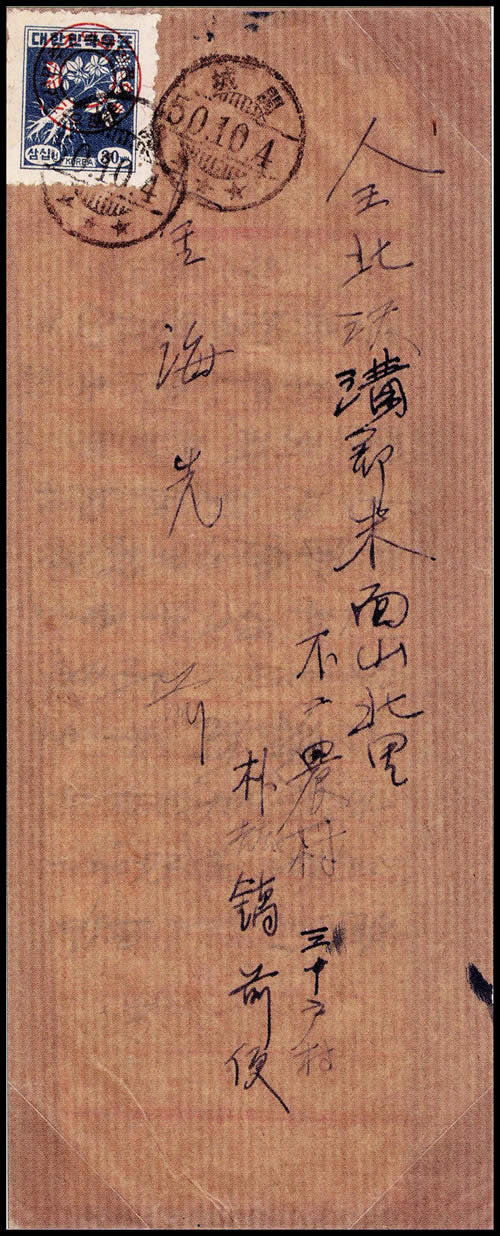 대한민국우표
삼십원 KOREA 30
50.10.4
50.10.4
全北沃溝郡米面山北里
不二農村 三十 村
朴 鎬前便
金海先 前